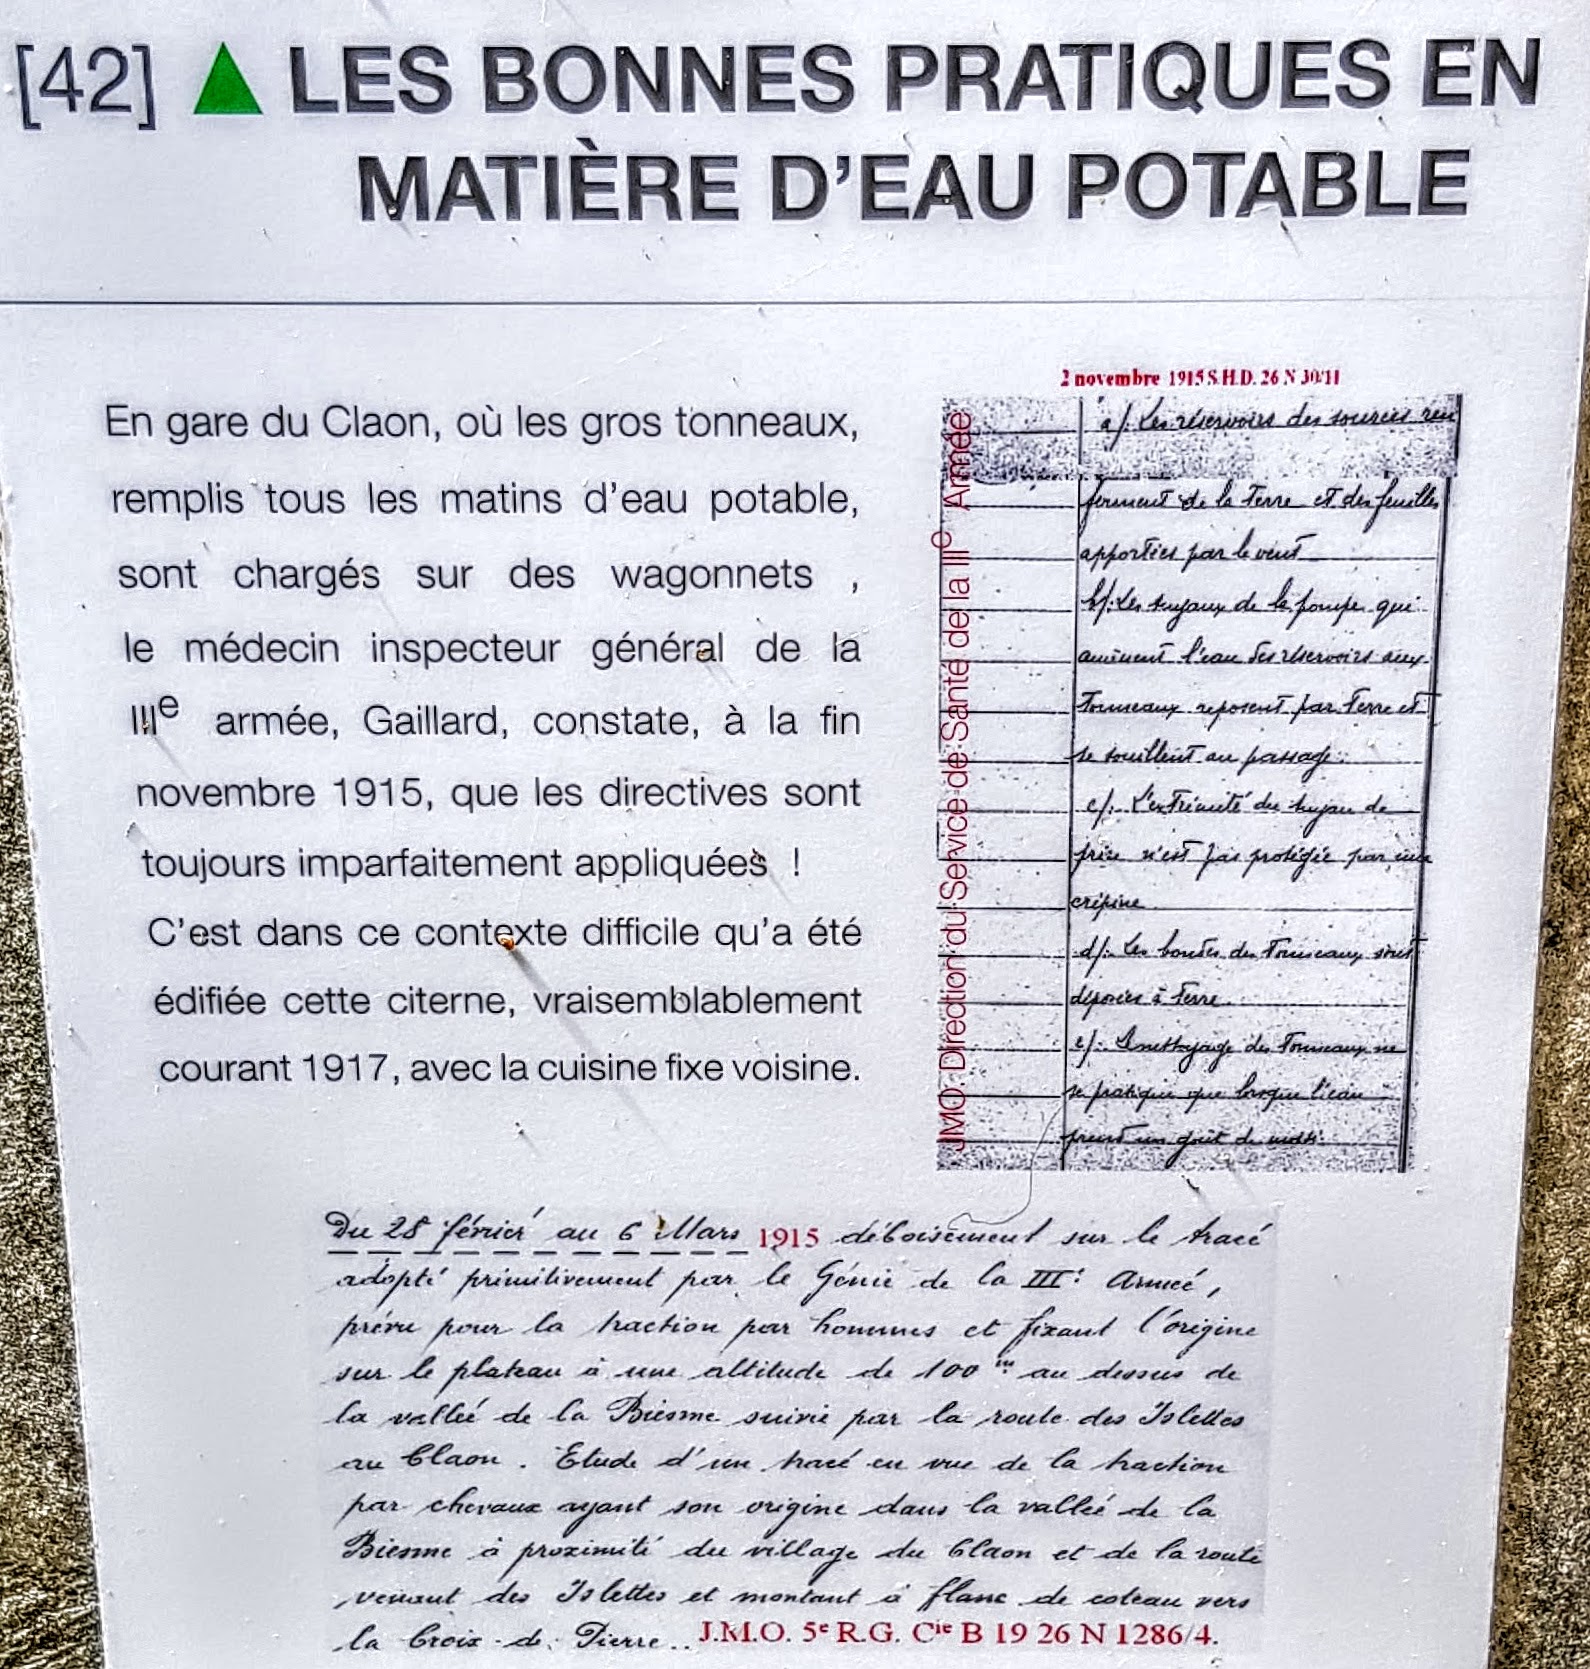 [42] ▲ LES BONNES PRATIQUES EN
MATIÈRE D'EAU POTABLE
En gare du Claon, où les gros tonneaux,
remplis tous les matins d'eau potable,
sont chargés sur des wagonnets ,
le médecin inspecteur général de la
IIIe armée, Gaillard, constate, à la fin
novembre 1915, que les directives sont
toujours imparfaitement appliquées !
C'est dans ce contexte difficile qu'a été
édifiée cette citerne, vraisemblablement
courant 1917, avec la cuisine fixe voisine.
2 novembre 1915 S.H.D. 26 N 30/11
JMO: Direction du Service de Santé de la IIIe Armée
a/. Les réservoirs des sources ren
ferment de la terre et des feuilles
apportées par le vent
b/. Les tuyaux de la pompe qui
amènent l'eau des réservoirs aux
tonneaux reposent par terre et
se souillent au passage.
c/. L'extrémité du tuyau de
prise n'est pas protégée par une
crépine
d/. Les bondes des tonneaux sont
déposées à terre.
e/. Le nettoyage des tonneaux ne
se pratique que lorsque l'eau
prend un goût de moisi.
Du 28 février au 6 Mars 1915 déboisement sur le tracé
adopté primitivement par le Génie de la IIIe Armée,
prévu pour la traction par hommes et fixant l'origine
sur le plateau à une altitude de 100m au dessus de
la vallée de la Biesme suivie par la route des Islettes
au Claon. Etude d'un tracé en vue de la traction
par chevaux ayant son origine dans la vallée de la
Biesme à proximité du village du Claon et de la route
venant des Islettes et montant à flanc de coteau vers
la Croix de Pierre.. J.M.O. 5e R.G. Cie B 19 26 N 1286/4.